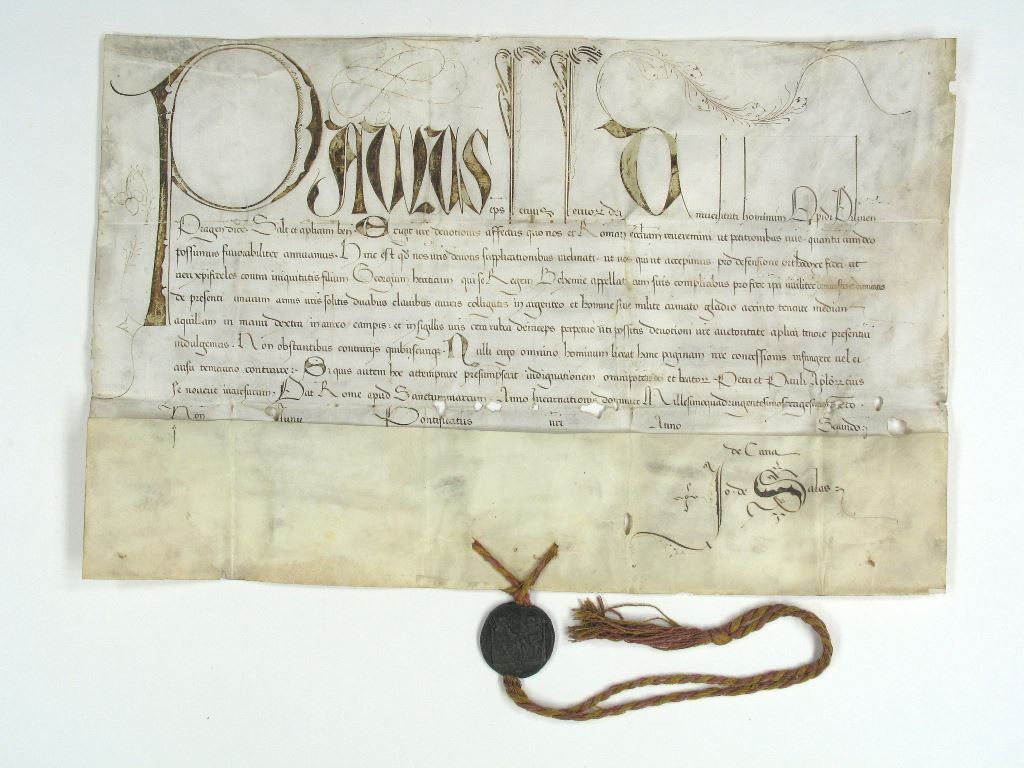 Paulus eps seruus seruor dei Ad universitati hominum Opidi Pilznen
Pragen dioc Salt et aplicam ben Exigit vre deuotionis affectus quo nos et Romanam eccliam reueremini ut petitionibus vris quantum cum deo
possumus fauorabiliter annuamus. Hinc est qd nos vris deuotis supplicationibus inclinati ut vos qui ut accepimus pro defensione orthodoxe fidei ut
veri xpifideles contra iniquitatis filium Georgium hereticum qui se Regem Bohemie appellat eum suis complicibus
de presenti in armis vris solitis duabus clauibus aureis colligatis in argenteo et homine siue milite armato gladio accinto tenente mediam
aquilam in manu dextra in aureo campis et in sigillis vris cera rubea deinceps perpetuo uti possitis deuotioni vre auctoritate aplica tenore presentium
indulgemus. Non obstantibus contrariis quibuscunqz. Nulli ergo omnino hominum liceat hanc paginam nre concessionis infringere vel ei
ausu temerario contraire: Siquis autem hoc attemptare presumpserit indignationem omnipotentis dei et beator Petri et Pauli Aplor eius
se nouerit incursurum. Dat Rome apud Sanctummarcum Anno Incarnationis dominice Millesimoquadringentesimosexagesimosexto
Non Pontificatus nri Anno Secundo:
de Curia
Jo. de Salas